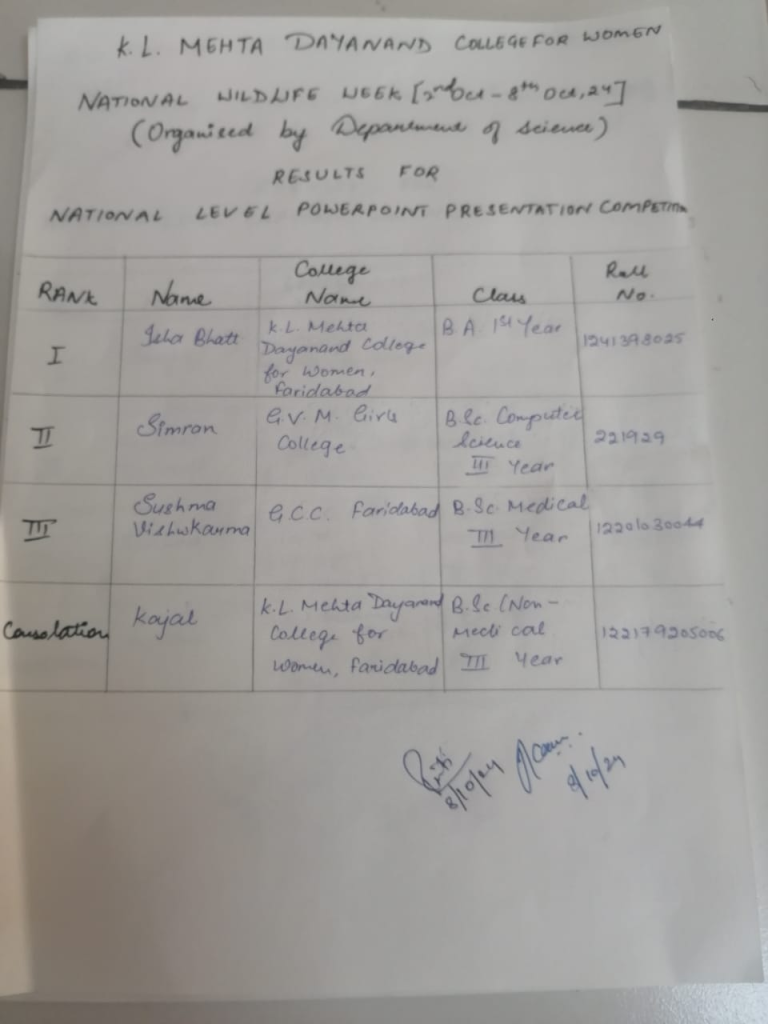 K.L. MEHTA DAYANAND COLLEGE FOR WOMEN
NATIONAL WILDLIFE WEEK [2nd Oct - 8th Oct, 24]
(Organised by Department of Science)
RESULTS FOR
NATIONAL LEVEL POWERPOINT PRESENTATION
RANK
Name
College
Name
Class
Roll
No.
I
Isha Bhatt
K.L. Mehta
Dayanand College
for Women,
Faridabad
B.A. 1st Year
1241398025
II
Simran
G.V.M. Girls
College
B.Sc. Computer
Science
III Year
221929
III
Sushma
Vishwkarma
G.C.C. Faridabad
B.Sc. Medical
III Year
Consolation
Kajal
K.L. Mehta Dayanand
College for
Women, Faridabad
B.Sc (Non-
Medical
III Year
8/10/24
8/10/24